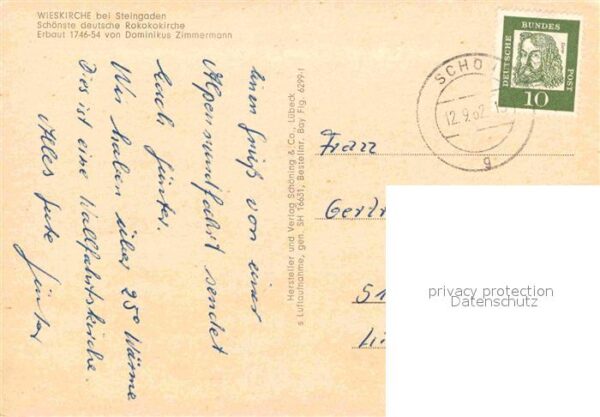 WIESKIRCHE bei Steingaden
Schönste deutsche Rokokokirche
Erbaut 1746-54 von Dominikus Zimmermann
einen Gruß von einer
Alpenrundfahrt sendet
Euch Günter.
Wir haben über 25° Wärme
Dies ist eine Wallfahrtskirche.
Alles Gute Günter
Hersteller und Verlag Schöning & Co., Lübeck
s Luftaufnahme, gen. SH 16631, Bestellnr. Bay Flg. 6299-1
SCHO
12.9.62
g
DEUTSCHE BUNDESPOST
10
Frau
Gertr
51
privacy protection
Datenschutz